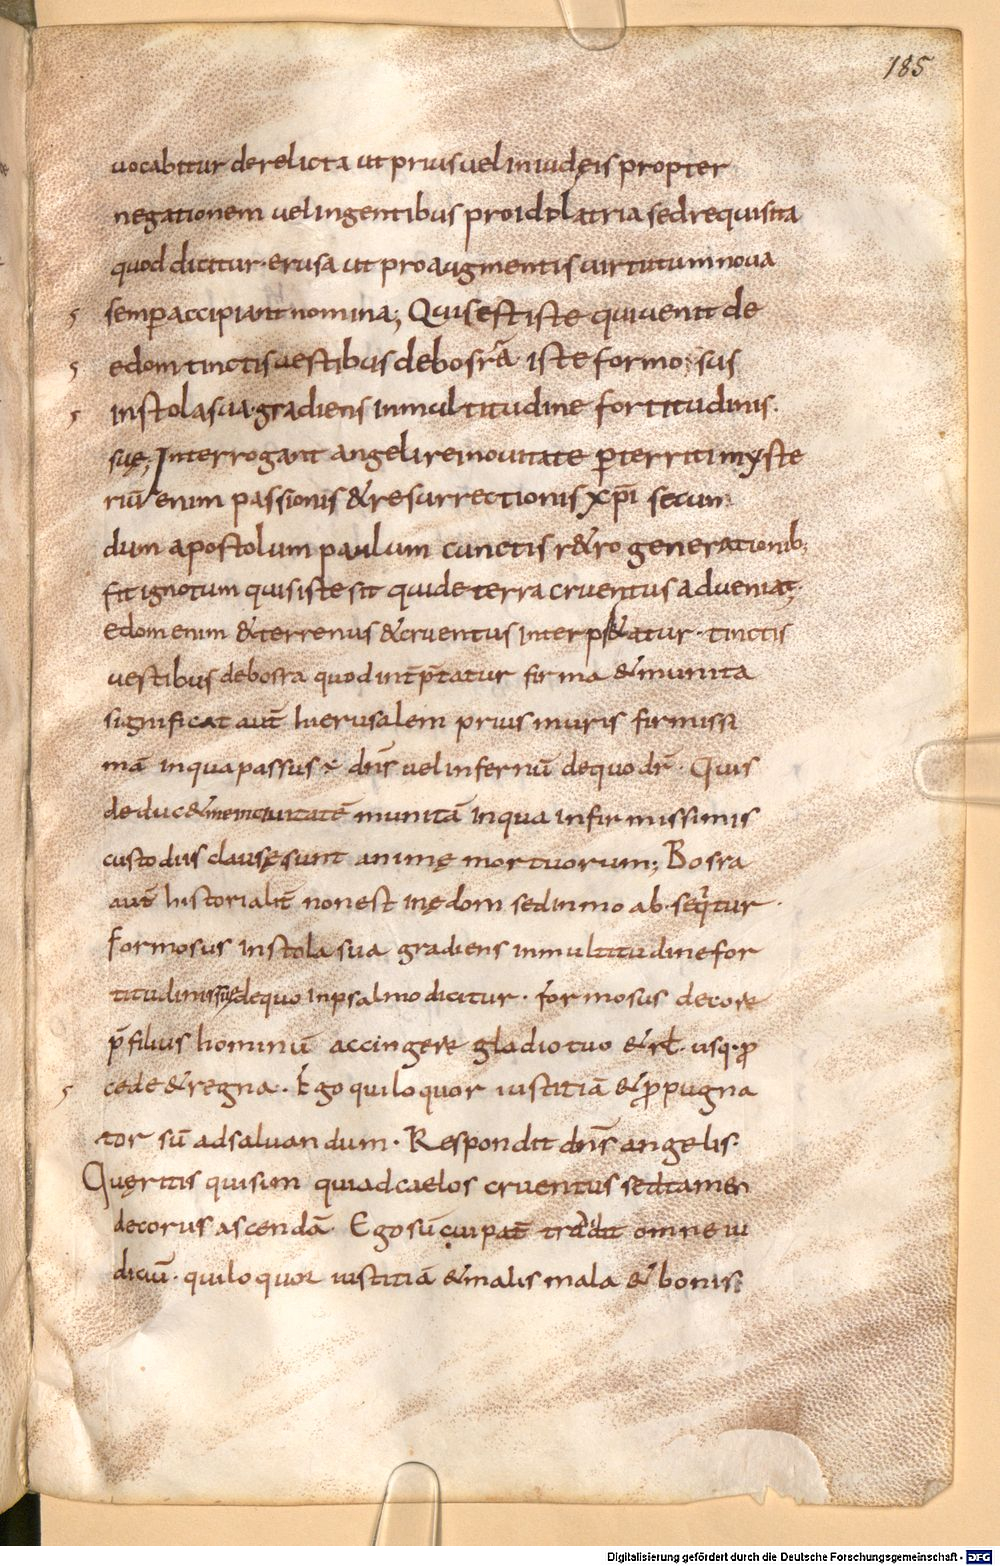 185
vocabitur derelicta ut prius uel in iudęis propter
negationem uel in gentibus pro idolatria sed requisita
quod dicitur · erusa ut pro augmentis uirtutum noua
semp accipiant nomina; Quis est iste qui uenit de
edom tinctis uestibus de bosra iste formosus
in stola sua · gradiens in multitudine fortitudinis
suę; Interrogant angeli rei nouitate perterriti myste
riū enim passionis & resurrectionis xp̄i secun
dum apostolum paulum cunctis r&ro generationib;
fit ignotum quis iste sit qui de terra cruentus adueniat;
edom enim & terrenus & cruentus interpr&atur · tinctis
uestibus de bosra quod int̄p̄tatur firma & munita
significat aut̄ hierusalem prius muris firmissi
mā in qua passus ē dn̄s uel infernū de quo dr̄ · Quis
deduc& me in ciuitatē munitā in qua infirmissimis
custodiis clausę sunt animę mortuorum; Bosra
aut̄ historialit̄ non est in ędom sed in moab · seqitur ·
formosus in stola sua gradiens in multitudine for
titudinis suę de quo in psalmo dicitur · formosus decore
p̄ filiis hominū accingere gladio tuo & rł · usq · p
cede & regna · Ego qui loquor iustitiā & ppugna
tor sū ad saluandum · Respondit dn̄s angelis ·
Quęritis qui sum qui ad caelos cruentus sed tamen
decorus ascendā · Ego sū cui pat̄ tradidit omne iu
diciū · qui loquor iustitiā & malis mala & bonis
Digitalisierung gefördert durch die Deutsche Forschungsgemeinschaft - DFG